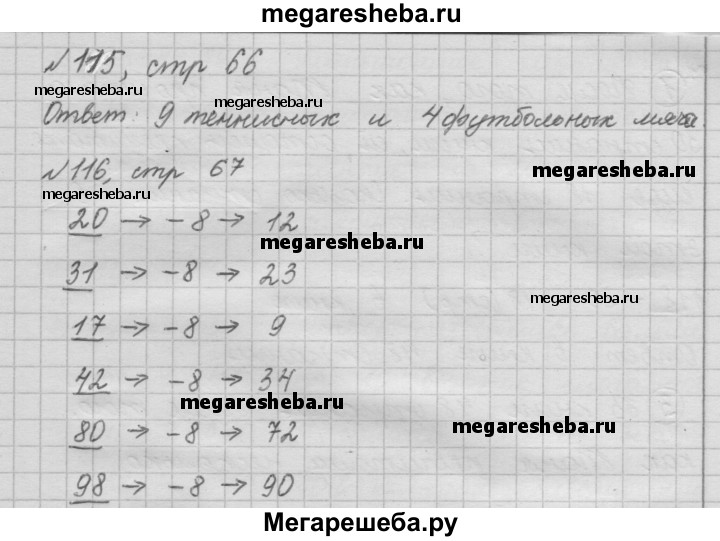 megaresheba.ru
№115, стр 66
megaresheba.ru
megaresheba.ru
Ответ: 9 теннисных и 4 футбольных мяча.
№116, стр 67
megaresheba.ru
megaresheba.ru
20 → -8 → 12
megaresheba.ru
31 → -8 → 23
megaresheba.ru
17 → -8 → 9
42 → -8 → 34
megaresheba.ru
80 → -8 → 72
megaresheba.ru
98 → -8 → 90
Мегарешеба.ру